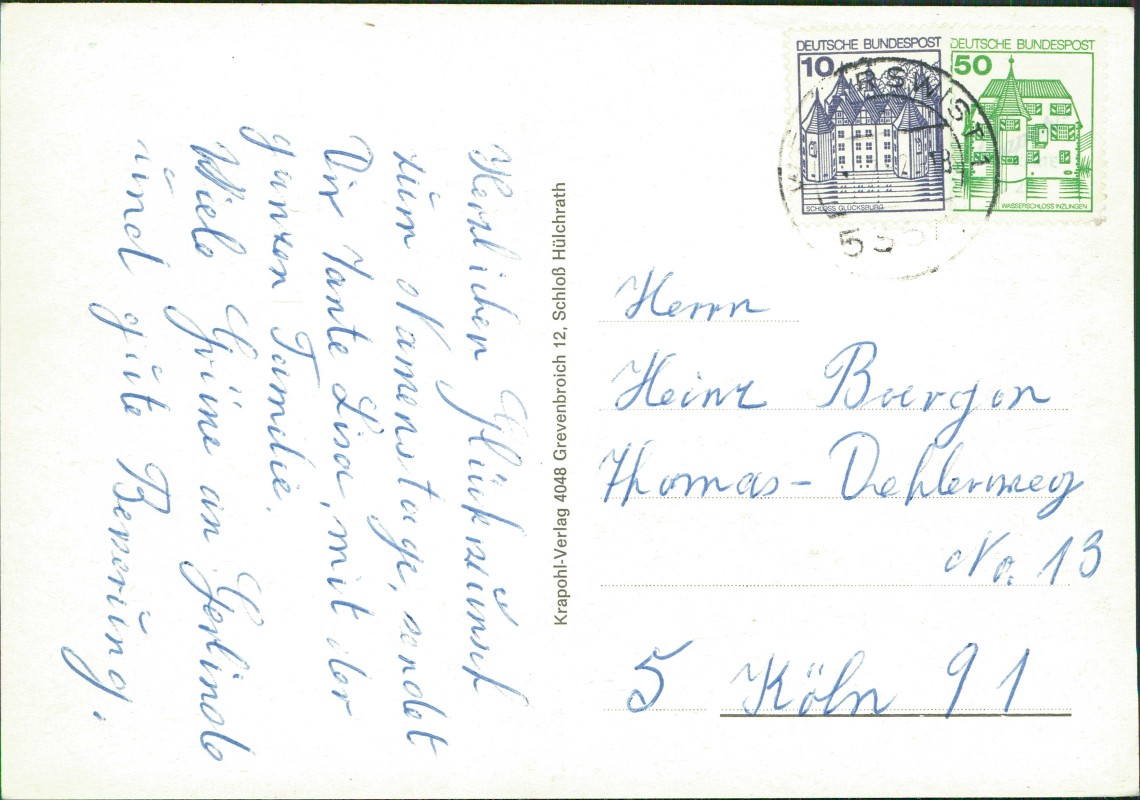 Herzlichen Glückzünsch
zum Namenstage, sendet
Dir Tante Lisa, mit der
ganzen Familie.
Viele Grüße an Gerlinde
und gute Besserung.
Krapohl-Verlag 4048 Grevenbroich 12, Schloß Hülchrath
DEUTSCHE BUNDESPOST
10
SCHLOSS GLÜCKSBURG
DEUTSCHE BUNDESPOST
50
WASSERSCHLOSS INZLINGEN
Herrn
Heinz Boergen
Thomas-Dehlerweg
No. 13
5 Köln 91